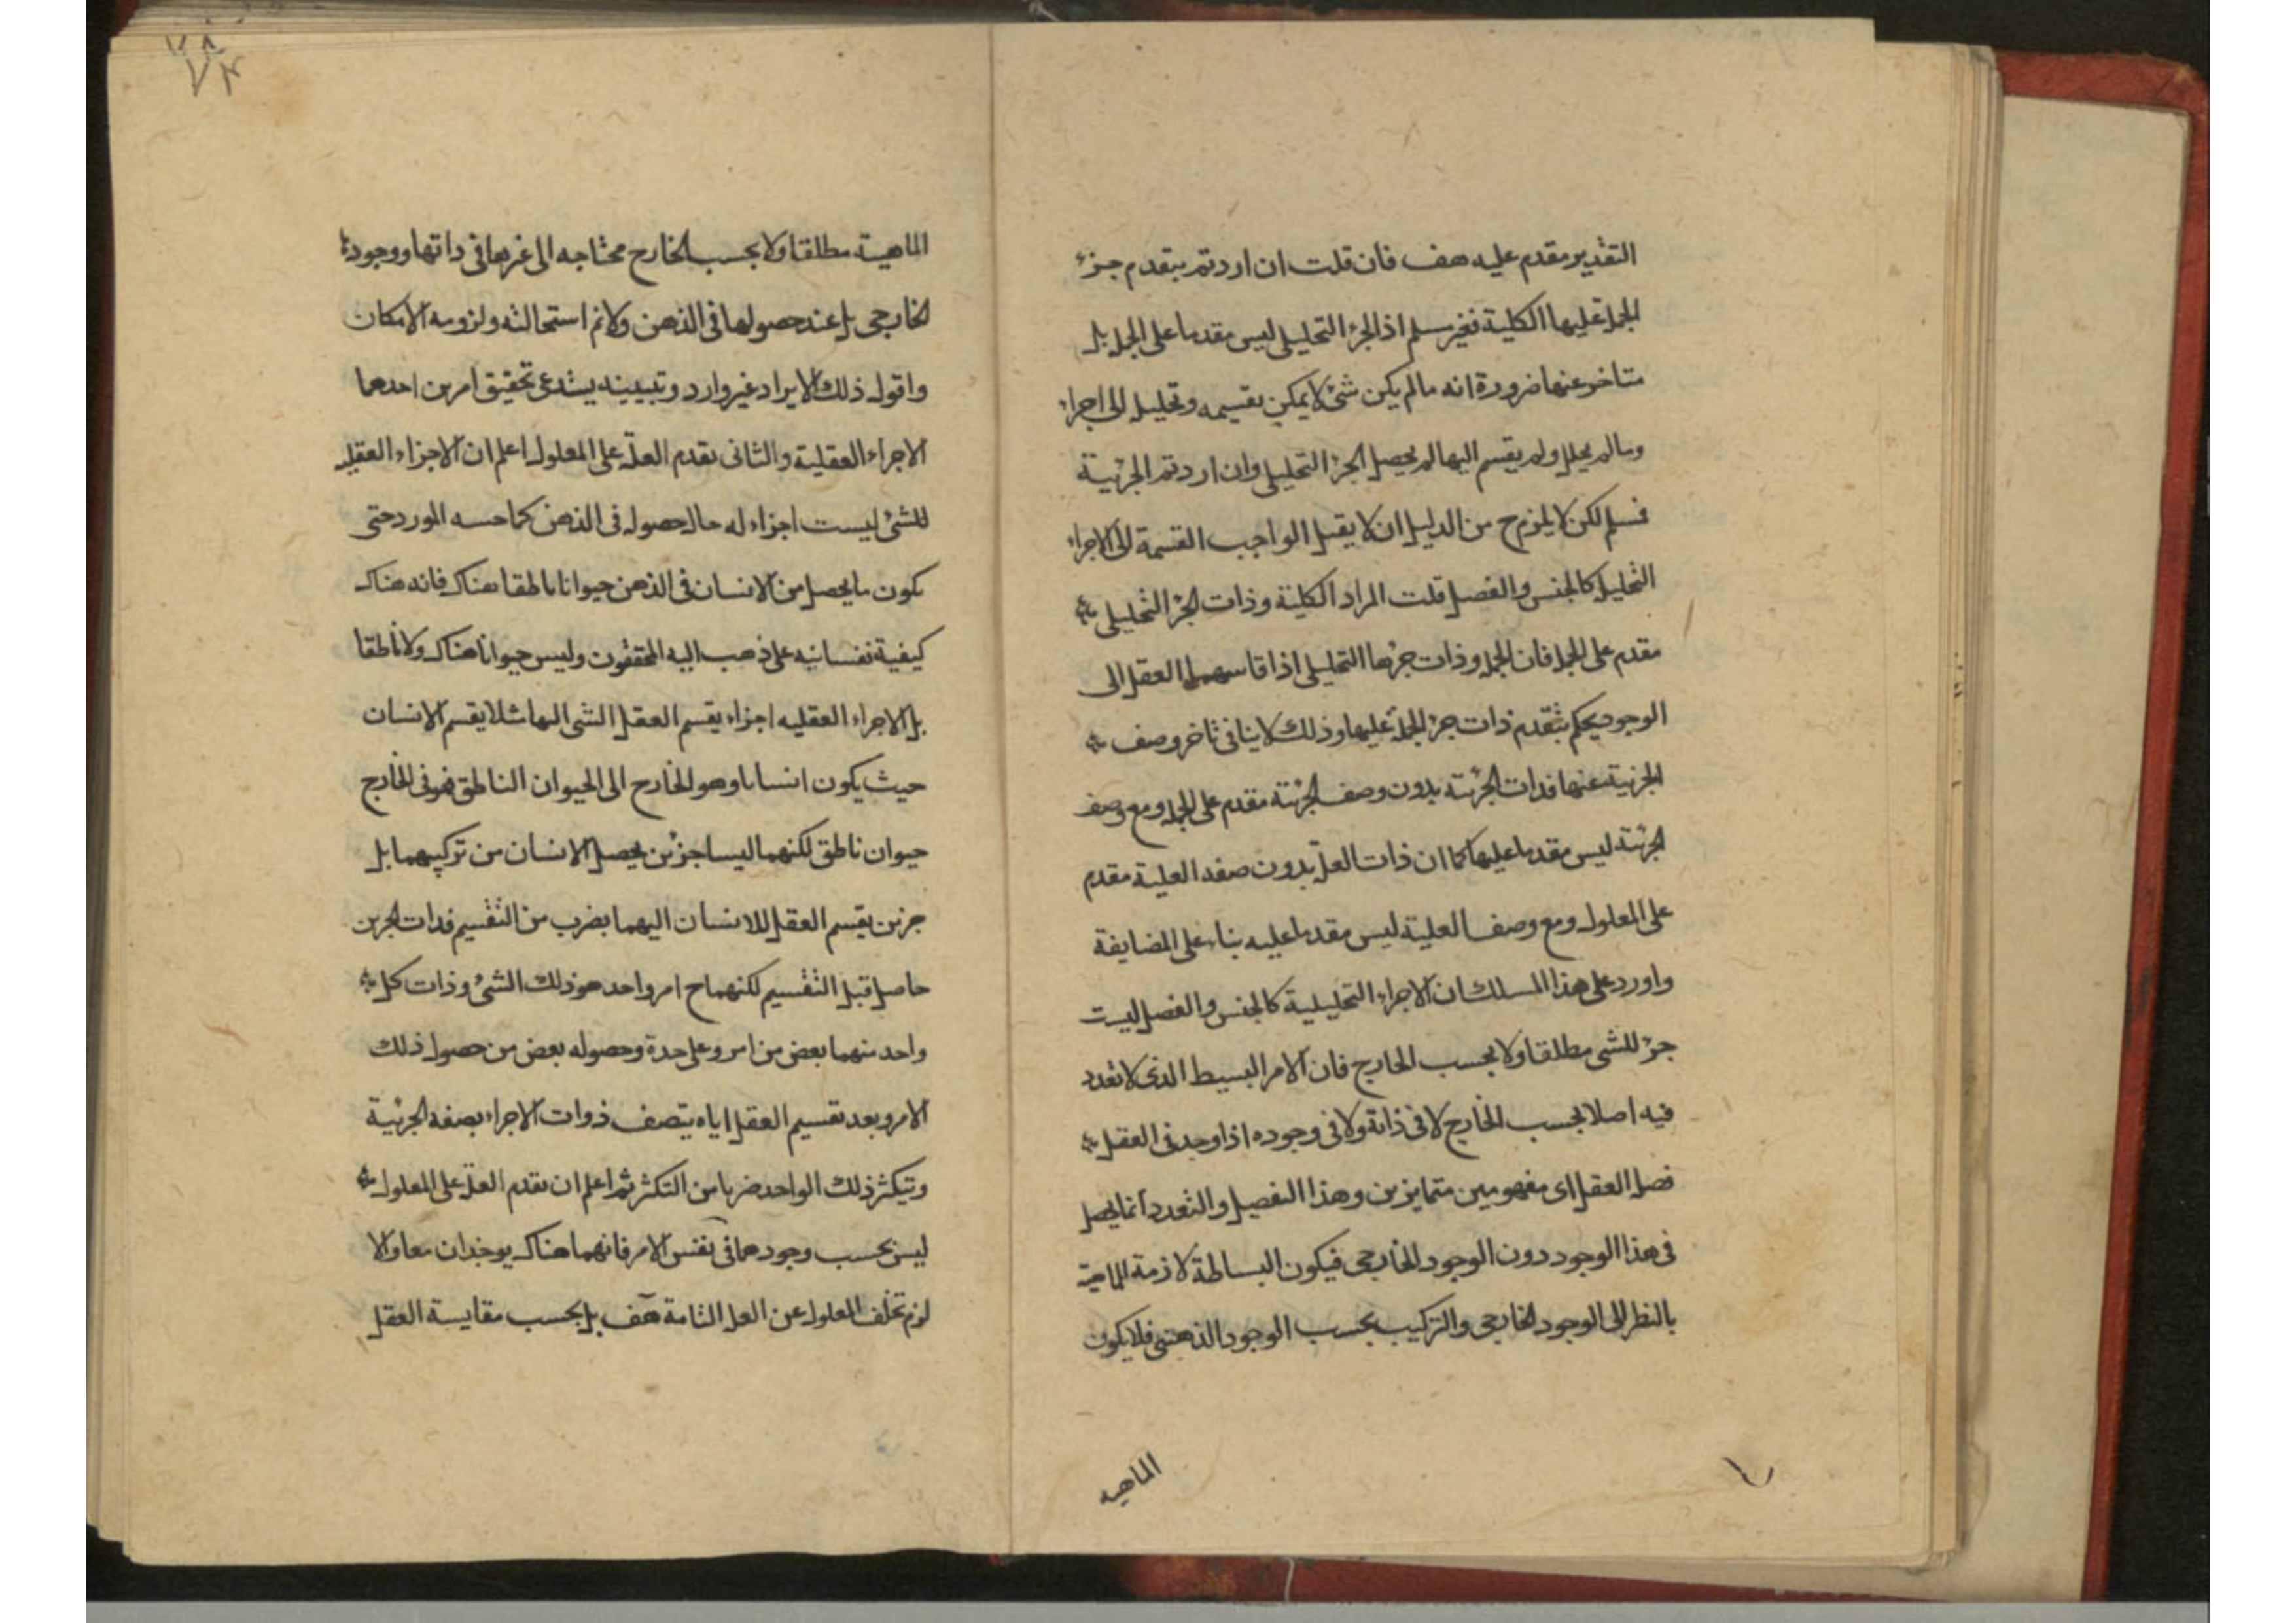 التقدير مقدم عليه هف فان قلت ان اردتم بتقدم جزء
الجملة عليها الكلية فغير مسلم اذ الجزء التحليلي ليس مقدما على الجملة بل
متاخر عنها ضرورة انه مالم يكن شئ لا يمكن تقسيمه وتحليله الى اجزاء
ومالم يحلل ولم يقسم اليها لم يحصل الجزء التحليلي وان اردتم الجزئية
فمسلم لكن لا يلزم ح من الدليل ان لا يقبل الواجب القسمة الى الاجزاء
التحليلية كالجنس والفصل قلت المراد الكلية وذات الجزء التحليلي
مقدم على الجملة فان الجملة وذات جزءها التحليلي اذا قاسهما العقل الى
الوجود يحكم بتقدم ذات جزء الجملة عليها وذلك لا ينافي تاخر وصف
الجزئية عنها فذات الجزئية بدون وصف الجزئية مقدم على الجملة ومع وصف
الجزئية ليس مقدما عليها كما ان ذات العلة بدون صفة العلية مقدم
على المعلول ومع وصف العلية ليس مقدما عليه بناء على المضايفة
واورد على هذا المسلك ان الاجزاء التحليلية كالجنس والفصل ليست
جزء للشئ مطلقا ولا بحسب الخارج فان الامر البسيط الذى لا تعدد
فيه اصلا بحسب الخارج لا فى ذاته ولا فى وجوده اذا وجد فى العقل
فصل العقل اى مفهومين متمايزين وهذا التفصيل والتعدد انما يحصل
فى هذا الوجود دون الوجود الخارجى فيكون البساطة لازمة للماهية
بالنظر الى الوجود الخارجى والتركيب بحسب الوجود الذهنى فلا يكون
الماهية
الماهية مطلقا ولا بحسب الخارج محتاجه الى غيرها فى ذاتها ووجودها
الخارجى بل عند حصولها فى الذهن ولانم استحالته ولزومه الامكان
واقول ذلك الايراد غير وارد وتبيينه يستدعى تحقيق امرين احدهما
الاجزاء العقلية والثانى تقدم العلة على المعلول اعلم ان الاجزاء العقلية
للشئ ليست اجزاء له حال حصوله فى الذهن كما حسبه المورد حتى
يكون ما يحصل من الانسان فى الذهن حيوانا ناطقا هناك فانه هناك
كيفية نفسانيه على ذهب اليه المحققون وليس حيوانا هناك ولا ناطقا
بل الاجزاء العقليه اجزاء يقسم العقل الشى اليها مثلا يقسم الانسان
حيث يكون انسانا وهو الخارج الى الحيوان الناطق فهو فى الخارج
حيوان ناطق لكنهما ليسا جزئين يحصل الانسان من تركيبهما بل
جزئين يقسم العقل للانسان اليهما بضرب من التقسيم فذات الجزئين
حاصل قبل التقسيم لكنهما ح امر واحد هو ذلك الشئ وذات كل
واحد منهما بعض من امر وعلى حدة وحصوله بعض من حصول ذلك
الامر وبعد تقسيم العقل اياه يتصف ذوات الاجزاء بصفة الجزئية
ويتكثر ذلك الواحد ضربا من التكثر ثم اعلم ان تقدم العلة على المعلول
ليس بحسب وجودهما فى نفس الامر فانهما هناك يوجدان معا والا
لزم تخلف المعلول عن العلة التامة هف بل بحسب مقايسة العقل